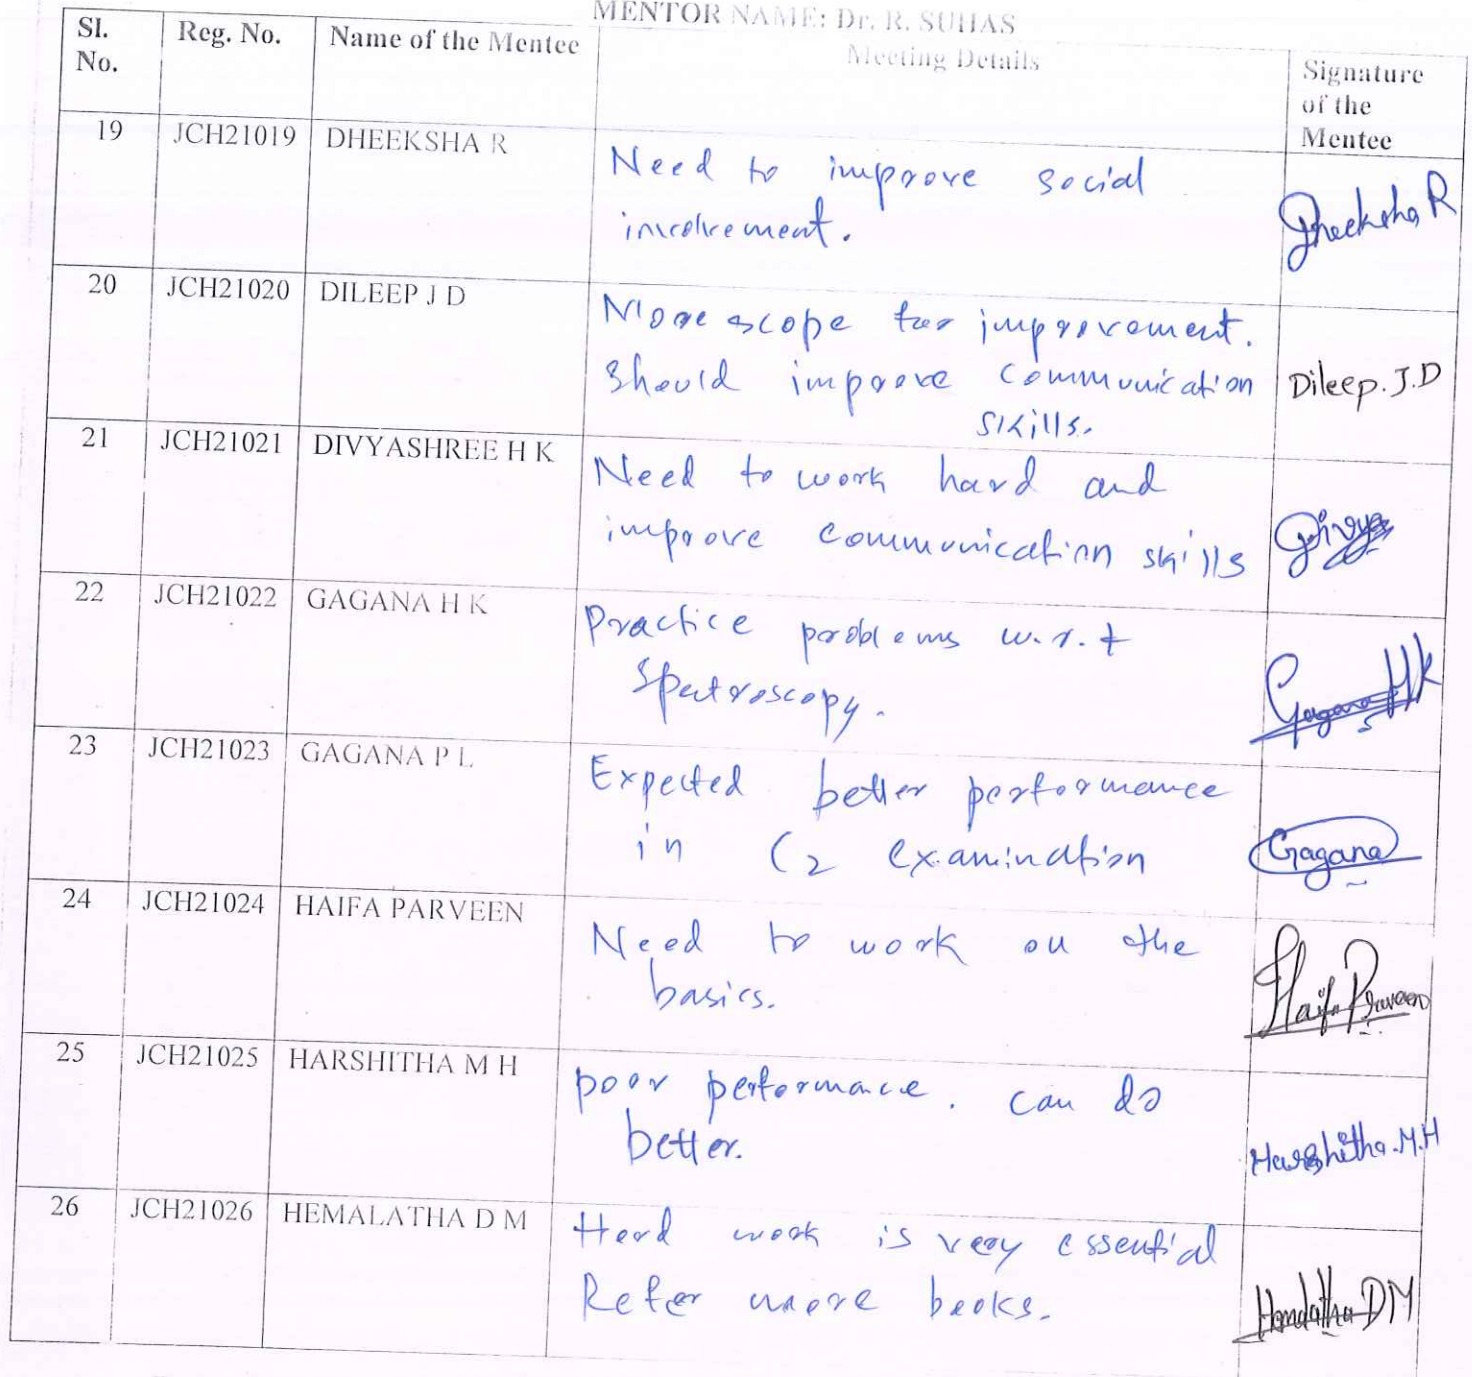 MENTOR NAME: Dr. R. SUHAS
Sl. No. Reg. No. Name of the Mentee Meeting Details Signature of the Mentee
19 JCH21019 DHEEKSHA R
Need to improve social
involvement.
Dheeksha R
20 JCH21020 DILEEP J D
More scope for improvement.
Should improve communication
skills.
Dileep. J.D
21 JCH21021 DIVYASHREE H K
Need to work hard and
improve communication skills
Divya
22 JCH21022 GAGANA H K
Practice problems w.r.t
Spectroscopy.
Gagana HK
23 JCH21023 GAGANA P L
Expected better performance
in C2 examination
Gagana
24 JCH21024 HAIFA PARVEEN
Need to work on the
basics.
Haifa Parveen
25 JCH21025 HARSHITHA M H
poor performance. can do
better.
Harshitha.M.H
26 JCH21026 HEMALATHA D M
Hard work is very essential
Refer more books.
Hemalatha DM